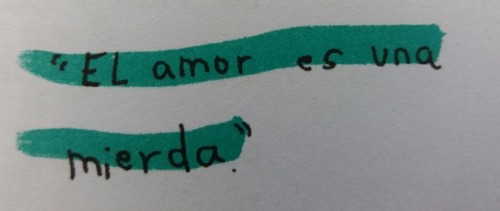 "EL amor es una
mierda."